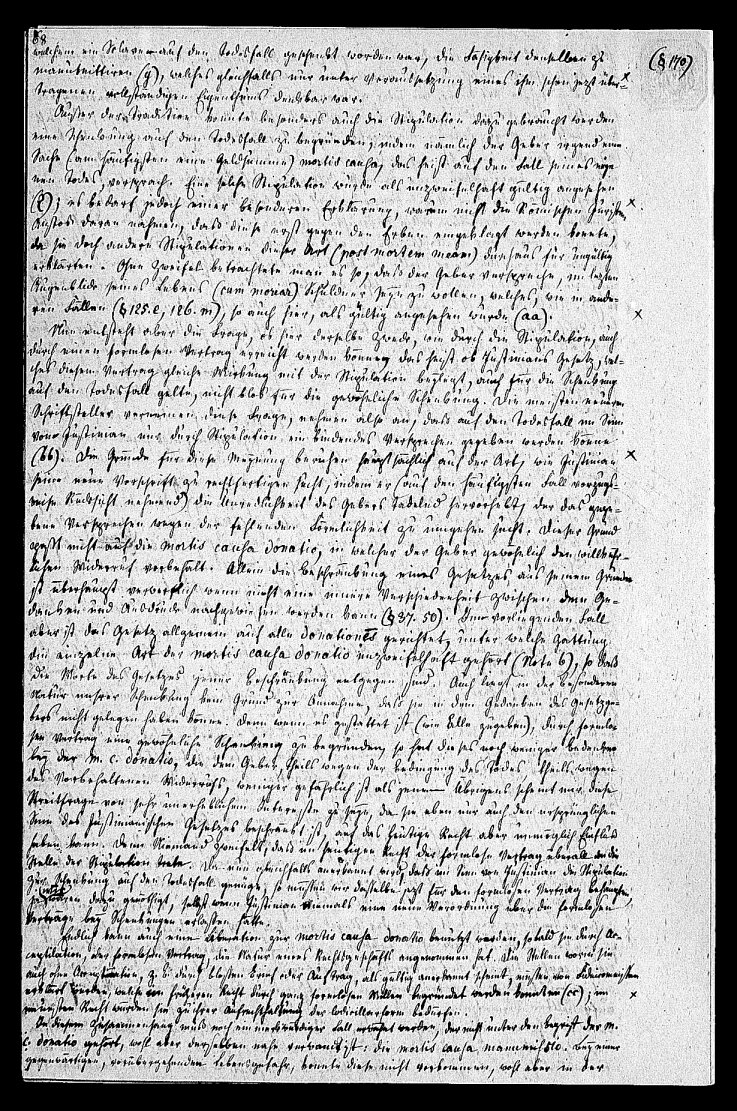 68
(§ 170)
welchem ein Sclave auf den Todesfall geschenkt worden war, die Fähigkeit denselben zu
manumittiren (y), welches gleichfalls nur unter Voraussetzung eines ihm schon jetzt über-
tragenen vollständigen Eigenthums denkbar war.
Außer der Tradition konnte besonders auch die Stipulation dazu gebraucht werden
eine Schenkung auf den Todesfall zu begründen, indem nämlich der Geber irgend eine
Sache (am häufigsten eine Geldsumme) mortis causa, das heißt auf den Fall seines eige-
nen Todes, versprach. Eine solche Stipulation wurde als unzweifelhaft gültig angesehen
(z); es bedarf jedoch einer besonderen Erklärung, warum nicht die Römischen Juristen
Anstoß daran nahmen, daß diese erst gegen den Erben eingeklagt werden konnte,
da sie doch andere Stipulationen dieser Art (post mortem meam) durchaus für ungültig
erklärten. Ohne Zweifel betrachtete man es so, daß der Geber verspreche, im letzten
Augenblick seines Lebens (cum moriar) Schuldner seyn zu wollen, welches, wie in ande-
ren Fällen (§ 125. l, 126. m), so auch hier, als gültig angesehen wurde (aa).
Nun entsteht aber die Frage, ob hier derselbe Zweck, wie durch die Stipulation, auch
durch einen formlosen Vertrag erreicht werden könne, das heißt ob Justinians Gesetz, wel-
ches diesem Vertrag gleiche Wirkung mit der Stipulation beylegt, auch für die Schenkung
auf den Todesfall gelte, nicht blos für die gewöhnliche Schenkung. Die meisten neueren
Schriftsteller verneinen diese Frage, nehmen also an, daß auf den Todesfall im Sinn
von Justinian nur durch Stipulation ein bindendes Versprechen gegeben werden könne
(bb). Die Gründe für diese Meynung beruhen hauptsächlich auf der Art, wie Justinian
seine neue Vorschrift zu rechtfertigen sucht, indem er (auf den häufigsten Fall vorzugs-
weise Rücksicht nehmend) die Unredlichkeit des Gebers tadelnd hervorhebt, der das gege-
bene Versprechen wegen der fehlenden Förmlichkeit zu umgehen sucht. Dieser Grund
paßt nicht auf die mortis causa donatio, in welcher der Geber gewöhnlich den willkühr-
lichen Widerruf vorbehält. Allein die Beschränkung eines Gesetzes aus seinem Grunde
ist überhaupt verwerflich wenn nicht eine innere Verschiedenheit zwischen dem Ge-
danken und Ausdruck nachgewiesen werden kann (§ 37. 50). Im vorliegenden Fall
aber ist das Gesetz allgemein auf alle donationes gerichtet, unter welche Gattung
die einzelne Art der mortis causa donatio unzweifelhaft gehört (Note b), so daß
die Worte des Gesetzes jener Beschränkung entgegen sind. Auch liegt in der besonderen
Natur unsrer Schenkung kein Grund zur Annahme, daß sie in dem Gedanken des Gesetzge-
bers nicht gelegen haben könne. Denn wenn es gestattet ist (wie Alle zugeben), durch formlo-
sen Vertrag eine gewöhnliche Schenkung zu begründen, so hat dieses noch weniger Bedenken
bey der m. c. donatio, die dem Geber, theils wegen der Bedingung des Todes, theils wegen
des vorbehaltenen Widerrufs, weniger gefährlich ist als jene. Übrigens scheint mir diese
Streitfrage von sehr unerheblichem Interesse zu seyn, da sie eben nur auf den ursprünglichen
Sinn des Justinianischen Gesetzes beschränkt ist, auf das heutige Recht aber unmöglich Einfluß
haben kann. Denn Niemand zweifelt, daß im heutigen Recht der formlose Vertrag überall an die
Stelle der Stipulation trete. Da nun gleichfalls anerkannt wird, daß im Sinn von Justinian die Stipulation
zur Schenkung auf den Todesfall genüge, so müssen wir dasselbe jetzt für den formlosen Vertrag behaupten,
dazu genöthigt, selbst wenn Justinian niemals eine neue Verordnung über die formlosen
Verträge bey Schenkungen erlassen hätte.
Endlich kann auch eine Liberation zur mortis causa donatio benutzt werden, sobald sie durch Ac-
ceptilation, oder formlosen Vertrag, die Natur eines Rechtsgeschäfts angenommen hat. Die Stellen worin sie
auch ohne Acceptation, z. B. durch bloßen Brief oder Auftrag, als gültig anerkannt scheint, müssen von Fideicommissen
erklärt werden, welche im früheren Recht durch ganz formlosen Willen begründet werden konnten (cc); im
neuesten Recht würden sie zu ihrer Aufrechthaltung der Codicillarform bedürfen.
In diesem Zusammenhang muß noch ein merkwürdiger Fall erwähnt werden, der nicht unter den Begriff der m.
c. donatio gehört, wohl aber derselben nahe verwandt ist: die mortis causa manumissio. Bey einer
gegenwärtigen, vorübergehenden Lebensgefahr, konnte diese nicht vorkommen, wohl aber in der